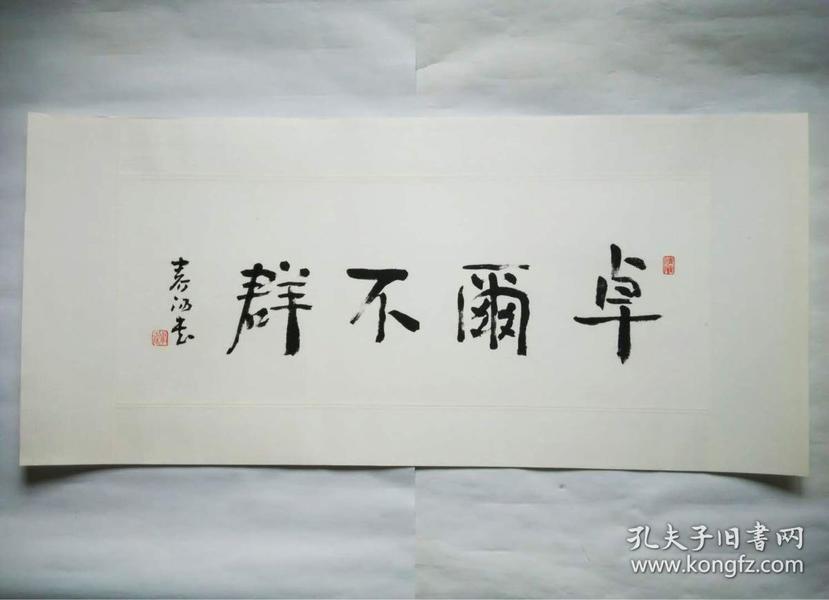 卓爾不群
孔夫子旧書网
www.kongfz.com